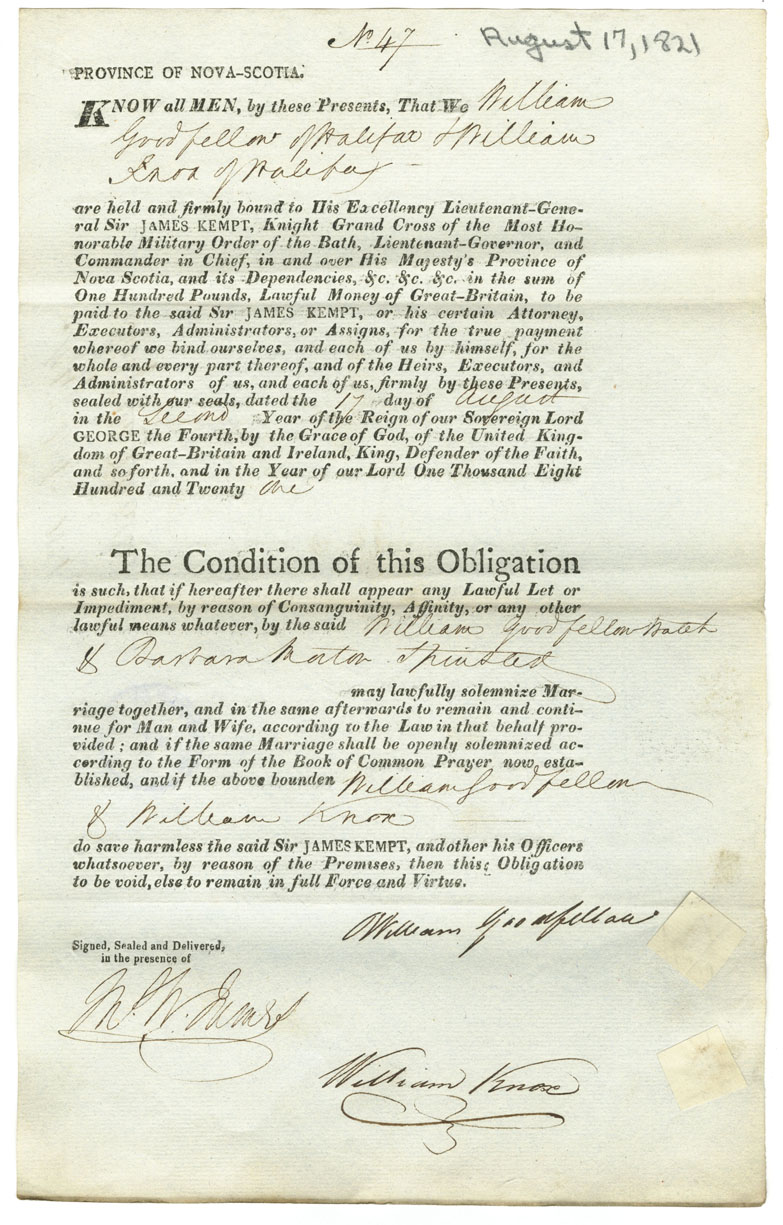 No. 47
August 17, 1821
PROVINCE OF NOVA-SCOTIA.
KNOW all MEN, by these Presents, That We William
Goodfellow of Halifax & William
Knox of Halifax
are held and firmly bound to His Excellency Lieutenant-Gene-
ral Sir JAMES KEMPT, Knight Grand Cross of the Most Ho-
norable Military Order of the Bath, Lieutenant-Governor, and
Commander in Chief, in and over His Majesty's Province of
Nova Scotia, and its Dependencies, &c. &c. &c. in the sum of
One Hundred Pounds, Lawful Money of Great-Britain, to be
paid to the said Sir JAMES KEMPT, or his certain Attorney,
Executors, Administrators, or Assigns, for the true payment
whereof we bind ourselves, and each of us by himself, for the
whole and every part thereof, and of the Heirs, Executors, and
Administrators of us, and each of us, firmly by these Presents,
sealed with our seals, dated the 17 day of August
in the Second Year of the Reign of our Sovereign Lord
GEORGE the Fourth, by the Grace of God, of the United King-
dom of Great-Britain and Ireland, King, Defender of the Faith,
and so forth, and in the Year of our Lord One Thousand Eight
Hundred and Twenty one
The Condition of this Obligation
is such, that if hereafter there shall appear any Lawful Let or
Impediment, by reason of Consanguinity, Affinity, or any other
lawful means whatever, by the said William Goodfellow Batch
& Barbara Morton Spinster
may lawfully solemnize Mar-
riage together, and in the same afterwards to remain and conti-
nue for Man and Wife, according to the Law in that behalf pro-
vided ; and if the same Marriage shall be openly solemnized ac-
cording to the Form of the Book of Common Prayer now esta-
blished, and if the above bounden William Goodfellow
& William Knox
do save harmless the said Sir JAMES KEMPT, and other his Officers
whatsoever, by reason of the Premises, then this Obligation
to be void, else to remain in full Force and Virtue.
William Goodfellow
Signed, Sealed and Delivered,
in the presence of
William Knox